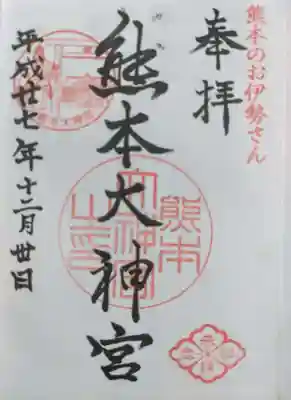 熊本のお伊勢さん
奉拝
熊本大神宮
平成廿七年十二月丗日